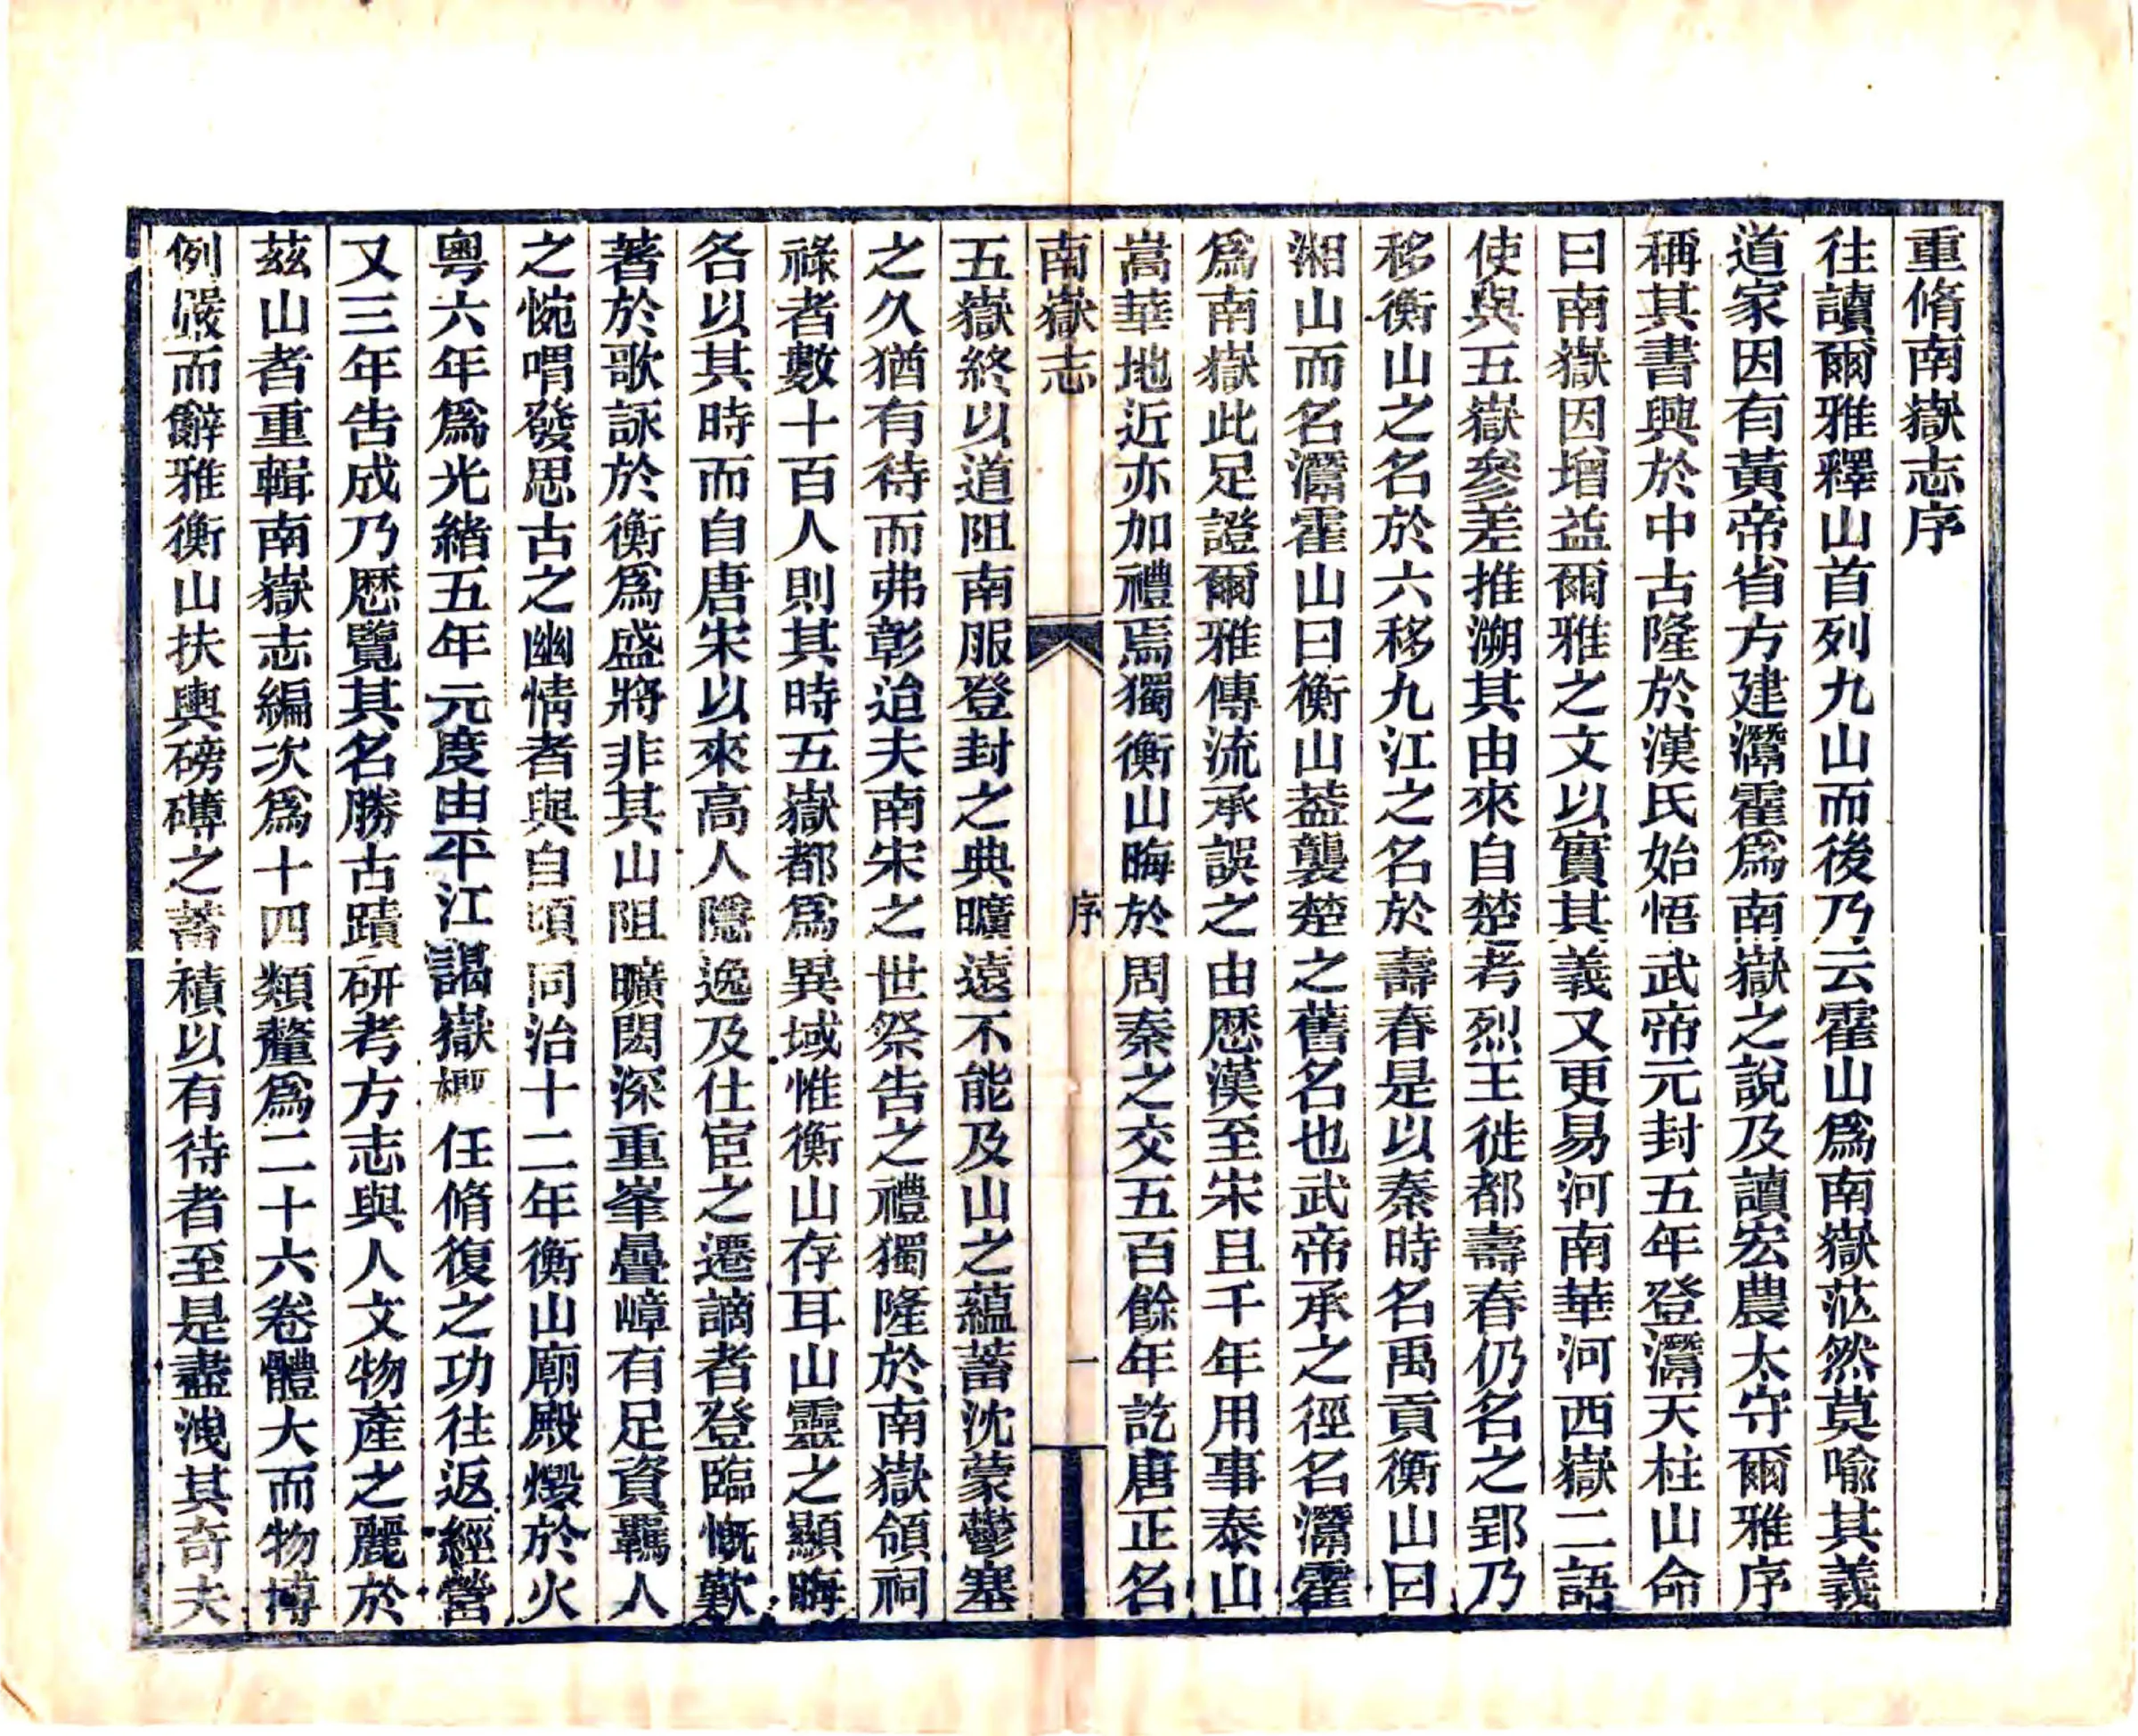 重脩南嶽志序
往讀爾雅釋山首列九山而後乃云霍山爲南嶽茫然莫喻其義
道家因有黃帝省方建灊霍爲南嶽之說及讀宏農太守爾雅序
稱其書興於中古隆於漢氏始悟武帝元封五年登灊天柱山命
曰南嶽因增益爾雅之文以實其義又更易河南華河西嶽二語
使與五嶽參差推溯其由來自楚考烈王徙都壽春仍名之郢乃
移衡山之名於六移九江之名於壽春是以秦時名禹貢衡山曰
湘山而名灊霍山曰衡山葢襲楚之舊名也武帝承之徑名灊霍
爲南嶽此足證爾雅傳流承誤之由歷漢至宋且千年用事泰山
嵩華地近亦加禮焉獨衡山晦於周秦之交五百餘年訖唐正名
南嶽志
序
一
五嶽終以道阻南服登封之典曠遠不能及山之蘊蓄沈蒙鬱塞
之久猶有待而弗彰迨夫南宋之世祭告之禮獨隆於南嶽領祠
祿者數十百人則其時五嶽都爲異域惟衡山存耳山靈之顯晦
各以其時而自唐宋以來高人隱逸及仕宦之遷謫者登臨慨歎
著於歌詠於衡爲盛將非其山阻曠閎深重峯疊嶂有足資羈人
之惋喟發思古之幽情者與自頃同治十二年衡山廟殿燬於火
粵六年爲光緖五年元度由平江謁嶽 任脩復之功往返經營
又三年告成乃歷覽其名勝古蹟研考方志與人文物產之麗於
茲山者重輯南嶽志編次爲十四類釐爲二十六卷體大而物博
例嚴而辭雅衡山扶輿磅礴之蓄積以有待者至是盡洩其奇夫